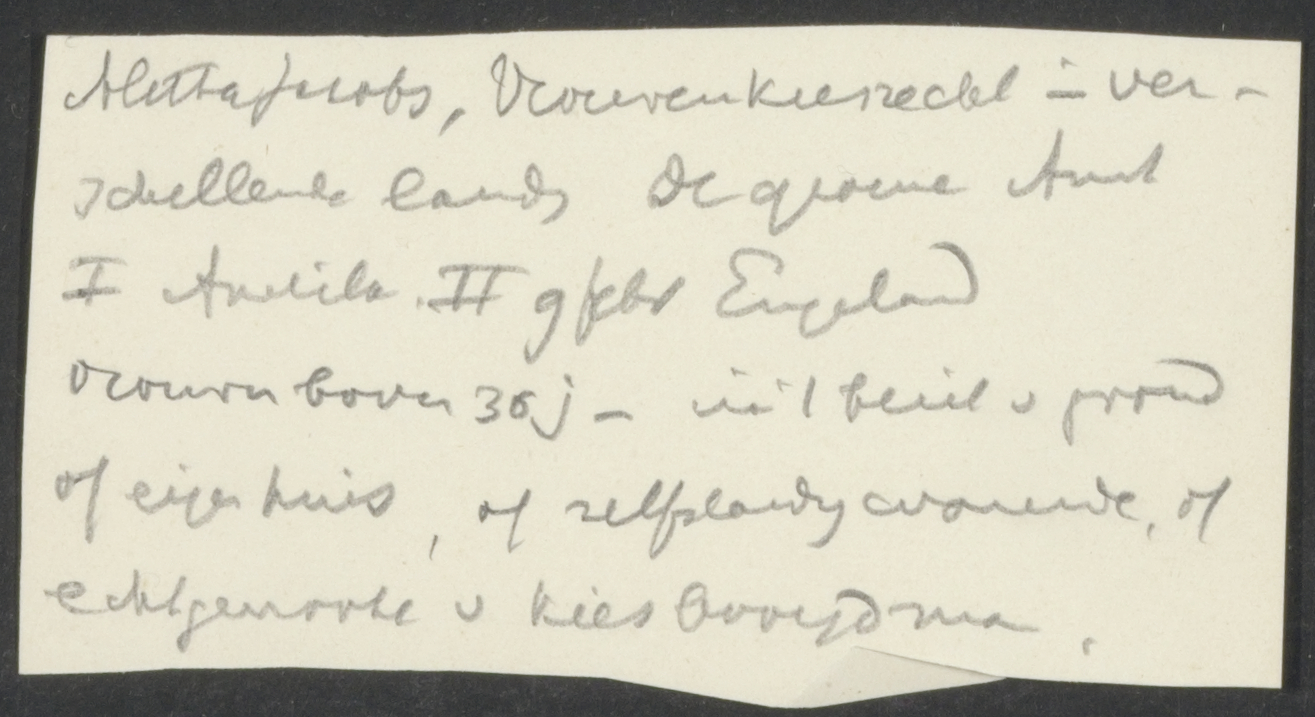 Aletta Jacobs, Vrouwenkiesrecht in ver-
schillende landen De groene Amst
I Amerika. II 9 febr Engeland
vrouwen boven 30 j – in 't bezit v grond
of eigen huis, of zelfstandig wonende, of
echtgenoote v kies bevoegd man.